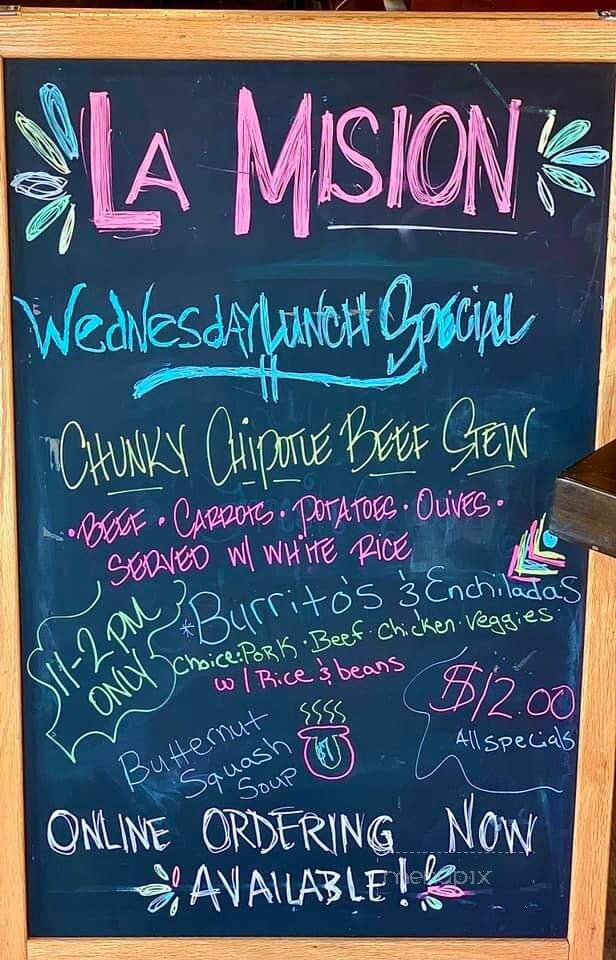 LA MISION
Wednesday Lunch Special
CHUNKY CHIPOTLE BEEF STEW
• BEEF • CARROTS • POTATOES • OLIVES •
SERVED W/ WHITE RICE
11-2 PM
ONLY
*Burrito's & Enchiladas
Choice: Pork • Beef • Chicken • Veggies
w/ Rice & beans
$12.00
All specials
Butternut
Squash
Soup
ONLINE ORDERING NOW
AVAILABLE!
menupix